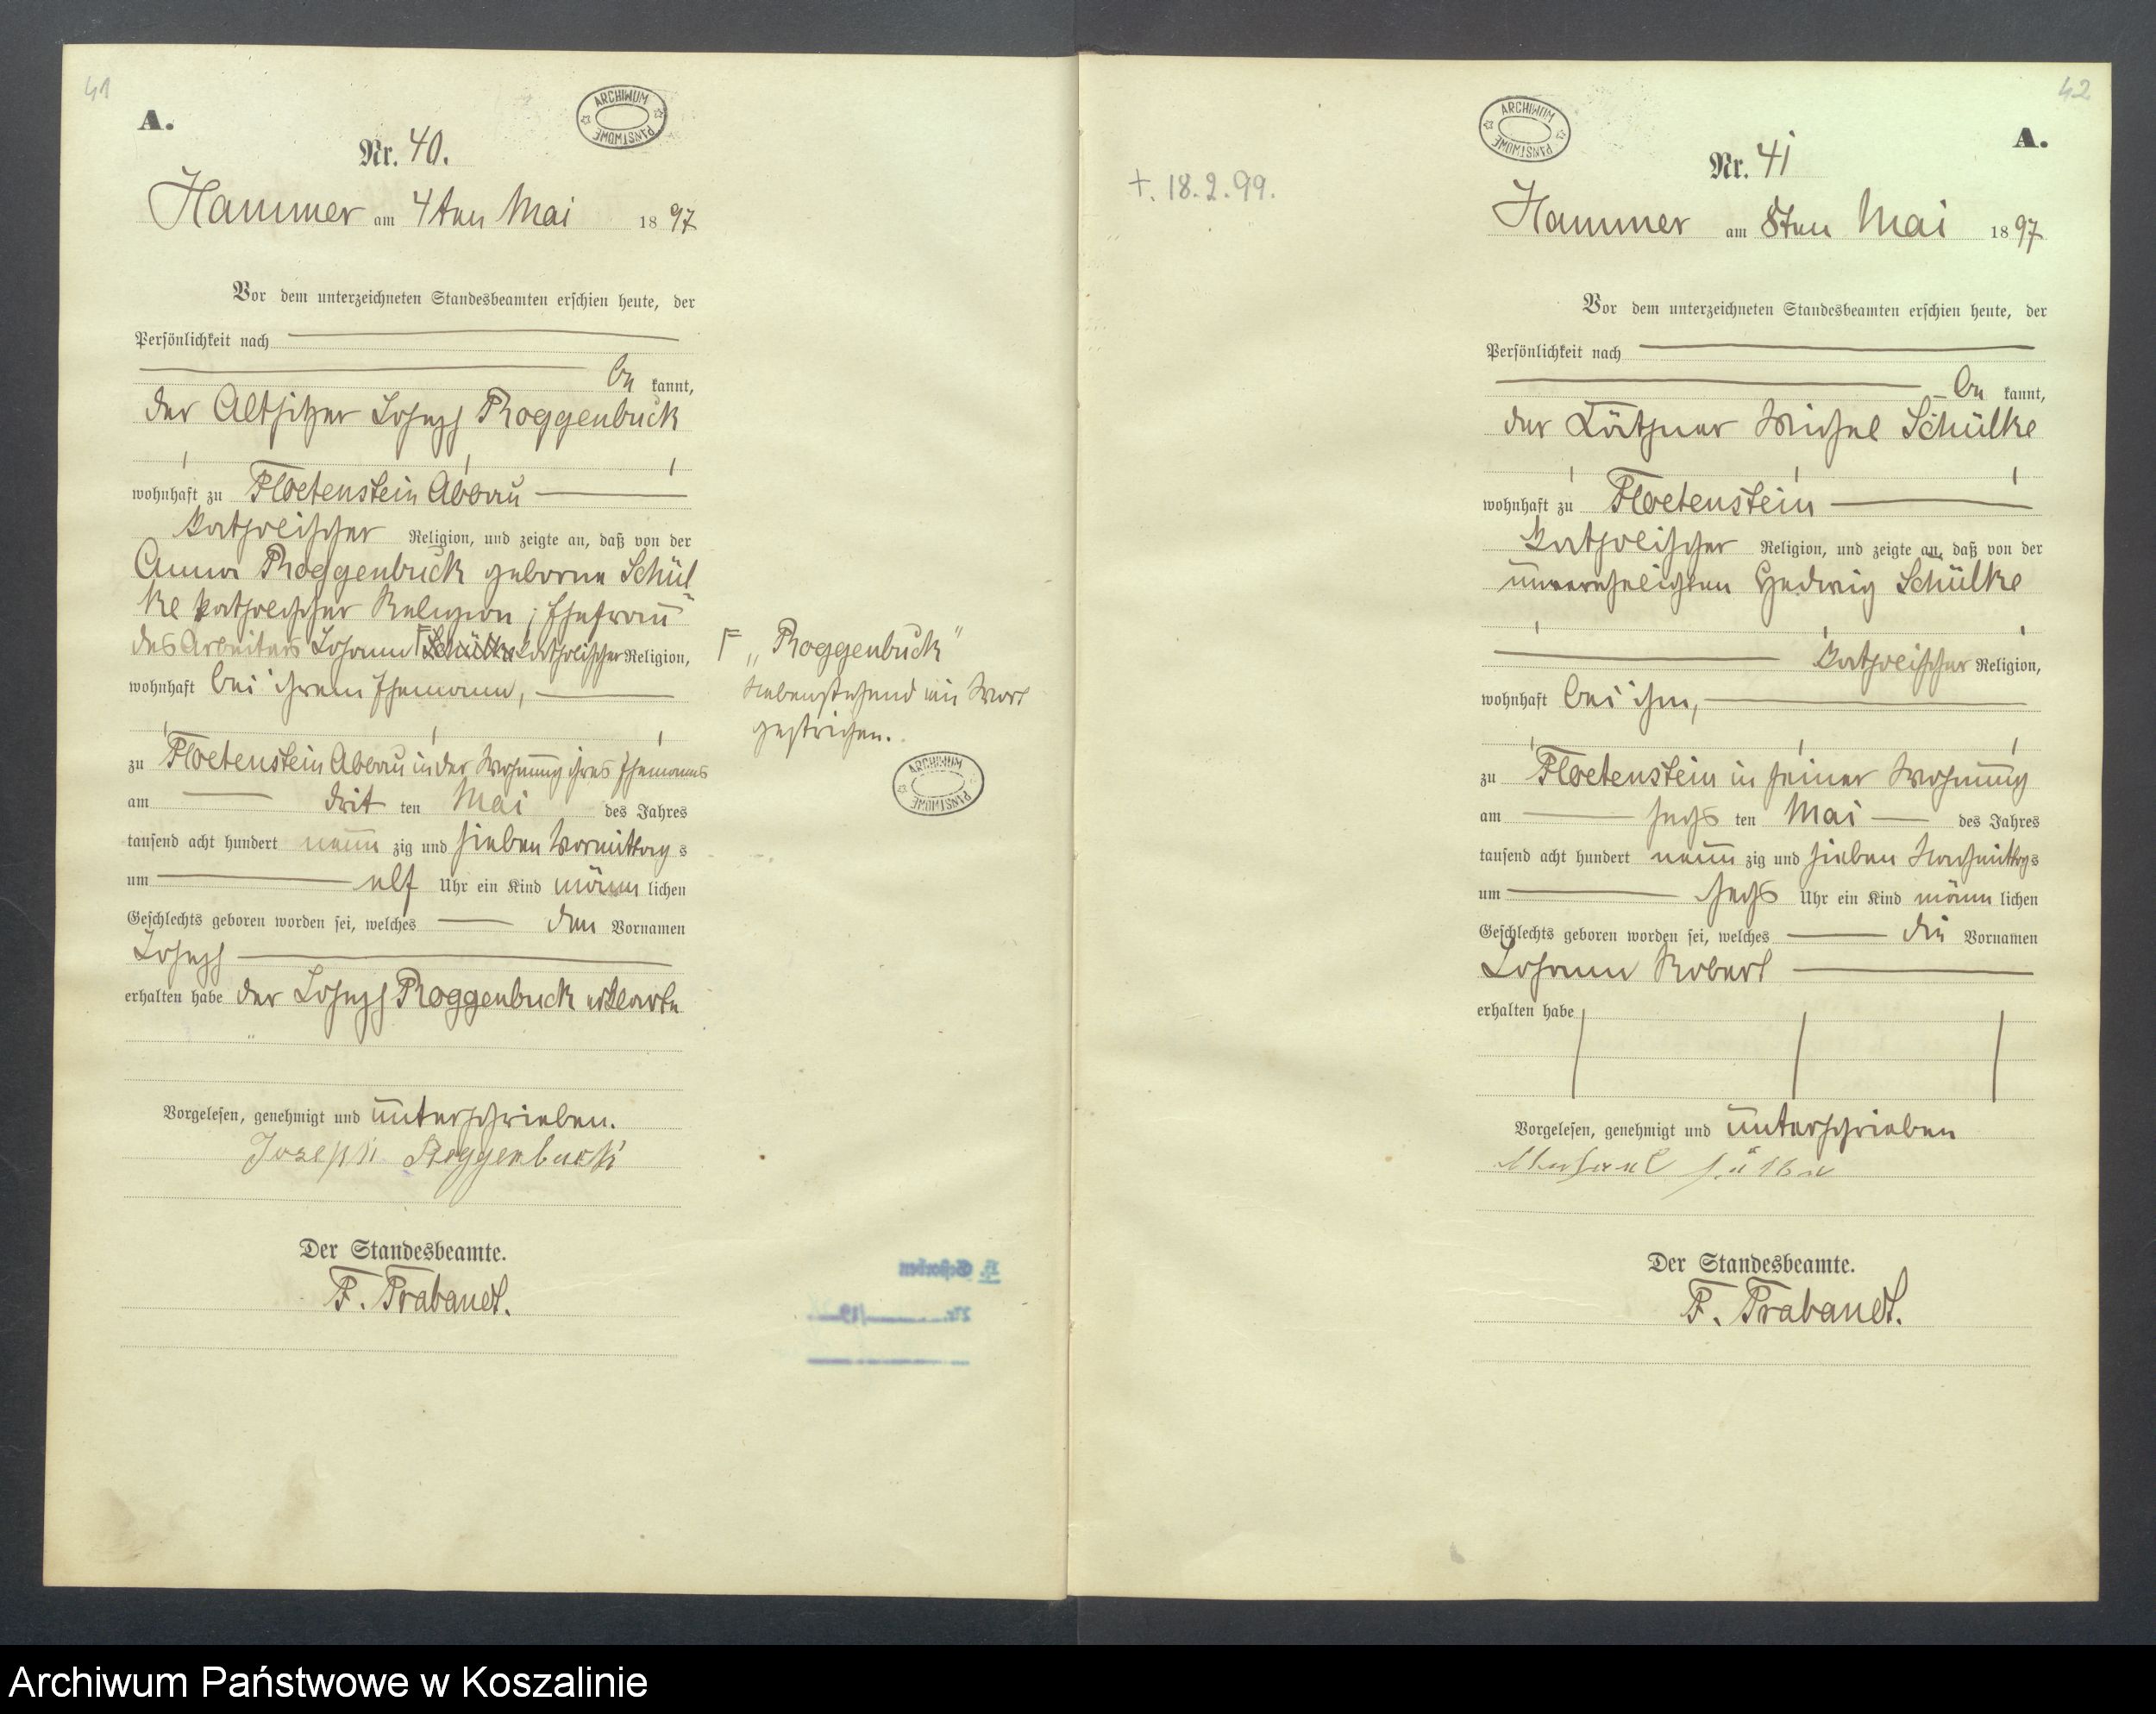 41
A.
ARCHIWUM PAŃSTWOWE
Nr. 40.
Hammer am 4ten Mai 1897
Vor dem unterzeichneten Standesbeamten erschien heute, der
Persönlichkeit nach
be kannt,
der Altsitzer Joseph Roggenbuck
wohnhaft zu Floetenstein Abbau
katholischer Religion, und zeigte an, daß von der
Anna Roggenbuck geborne Schül
ke katholischer Religion, Ehefrau
des Arbeiters Johann F Schülke katholischer Religion,
wohnhaft bei ihrem Ehemann,
zu Floetenstein Abbau in der Wohnung ihres Ehemanns
am drit ten Mai des Jahres
tausend acht hundert neun zig und sieben Vormittag s
um elf Uhr ein Kind männ lichen
Geschlechts geboren worden sei, welches den Vornamen
Joseph
erhalten habe der Joseph Roggenbuck erklärte
Vorgelesen, genehmigt und unterschrieben.
Joseph Roggenbuck
Der Standesbeamte.
F. Trabandt.
F „Roggenbuck"
Nebenstehend ein Wort
gestrichen.
ARCHIWUM PAŃSTWOWE
Gestorben
Nr. /19
42
+. 18.2.99.
ARCHIWUM PAŃSTWOWE
A.
Nr. 41
Hammer am 8ten Mai 1897
Vor dem unterzeichneten Standesbeamten erschien heute, der
Persönlichkeit nach
be kannt,
der Käthner Michel Schülke
wohnhaft zu Floetenstein
katholischer Religion, und zeigte an, daß von der
unverehelichten Hedwig Schülke
katholischer Religion,
wohnhaft bei ihm,
zu Floetenstein in seiner Wohnung
am sechs ten Mai des Jahres
tausend acht hundert neun zig und sieben Nachmittags
um sechs Uhr ein Kind männ lichen
Geschlechts geboren worden sei, welches die Vornamen
Johann Robert
erhalten habe
Vorgelesen, genehmigt und unterschrieben
Der Standesbeamte.
F. Trabandt.
Archiwum Państwowe w Koszalinie